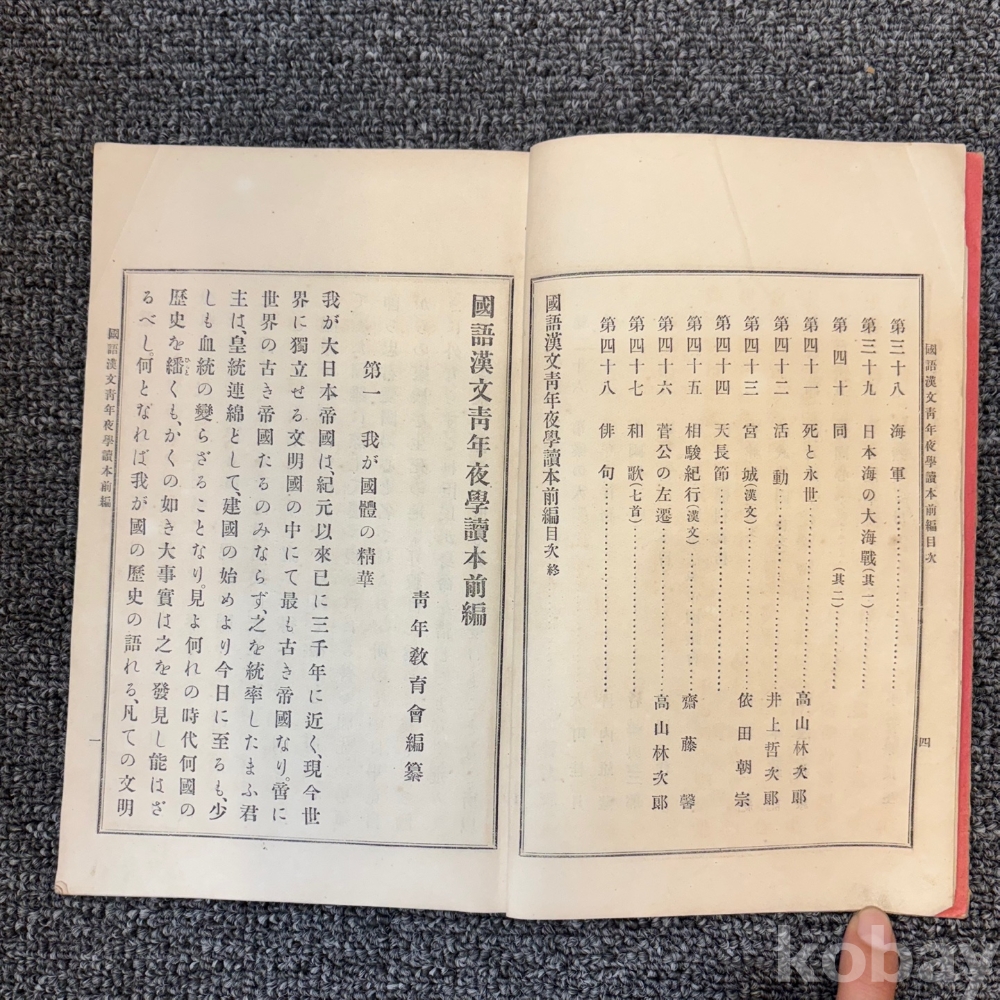 國語漢文靑年夜學讀本前編目次
四
第三十八 海軍
第三十九 日本海の大海戰(其一)
第四十 同(其二)
第四十一 死と永世 高山林次郞
第四十二 活動 井上哲次郞
第四十三 宮城(漢文) 依田朝宗
第四十四 天長節
第四十五 相駿紀行(漢文) 齋藤馨
第四十六 菅公の左遷 高山林次郞
第四十七 和歌(七首)
第四十八 俳句
國語漢文靑年夜學讀本前編目次終
國語漢文靑年夜學讀本前編
靑年敎育會編纂
第一 我が國體の精華
我が大日本帝國は、紀元以來已に三千年に近く、現今世
界に獨立せる文明國の中にて最も古き帝國なり。啻に
世界の古き帝國たるのみならず、之を統率したまふ君
主は、皇統連綿として、建國の始めより今日に至るも、少
しも血統の變らざることなり。見よ何れの時代何國の
歷史を繙くも、かくの如き大事實は之を發見し能はざ
るべし。何となれば我が國の歷史の語れる、凡ての文明
國語漢文靑年夜學讀本前編
一
kobay